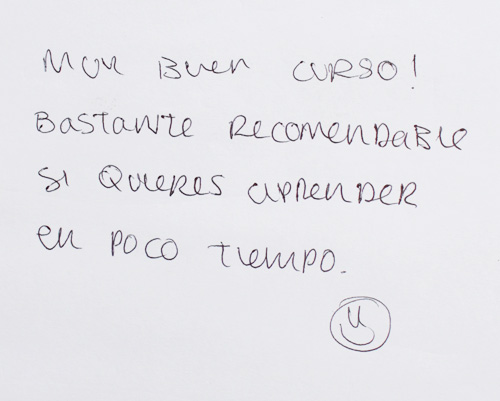 MUY BUEN CURSO!
BASTANTE RECOMENDABLE
SI QUIERES APRENDER
EN POCO TIEMPO.